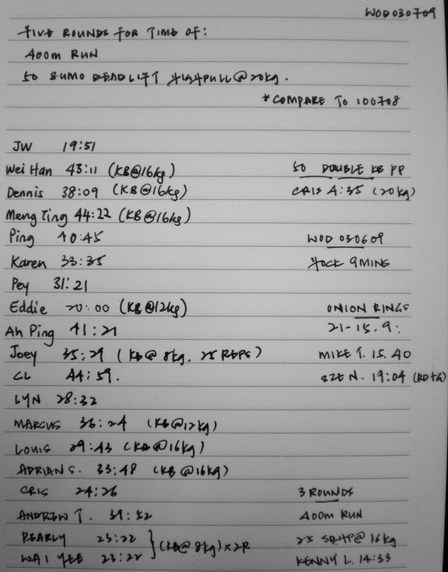 WOD 030709
FIVE ROUNDS FOR TIME OF:
400m RUN
50 SUMO DEADLIFT HIGHPULL @ 20kg.
*COMPARE TO 100708
JW 19:51
Wei Han 43:11 (KB@16kg)
50 DOUBLE KB PP
Dennis 38:09 (KB@16kg)
CRIS 4:35 (20kg)
Meng Ting 44:22 (KB@16kg)
Ping 40:45
WOD 030609
Karen 33:35
HOCK 9MINS
Pey 31:21
Eddie 20:00 (KB@12kg)
ONION RINGS
Ah Ping 41:21
21-15.9:
Joey 35:29 (KB@ 8kg, 25 REPS)
MIKE T. 15.40
CL 44:59.
SZE N. 19:04
LYN 28:32
MARCUS 36:24 (KB@12kg)
LOUIS 29:43 (KB@16kg)
ADRIAN S. 33:48 (KB@16kg)
CRIS 24:26
3 ROUNDS
ANDREW T. 31:52
400m RUN
PEARLY 23:22
25 SDHP@ 16kg
WAI YEE 23:22 } (KB@ 8kg) x 2R
KENNY L. 14:33